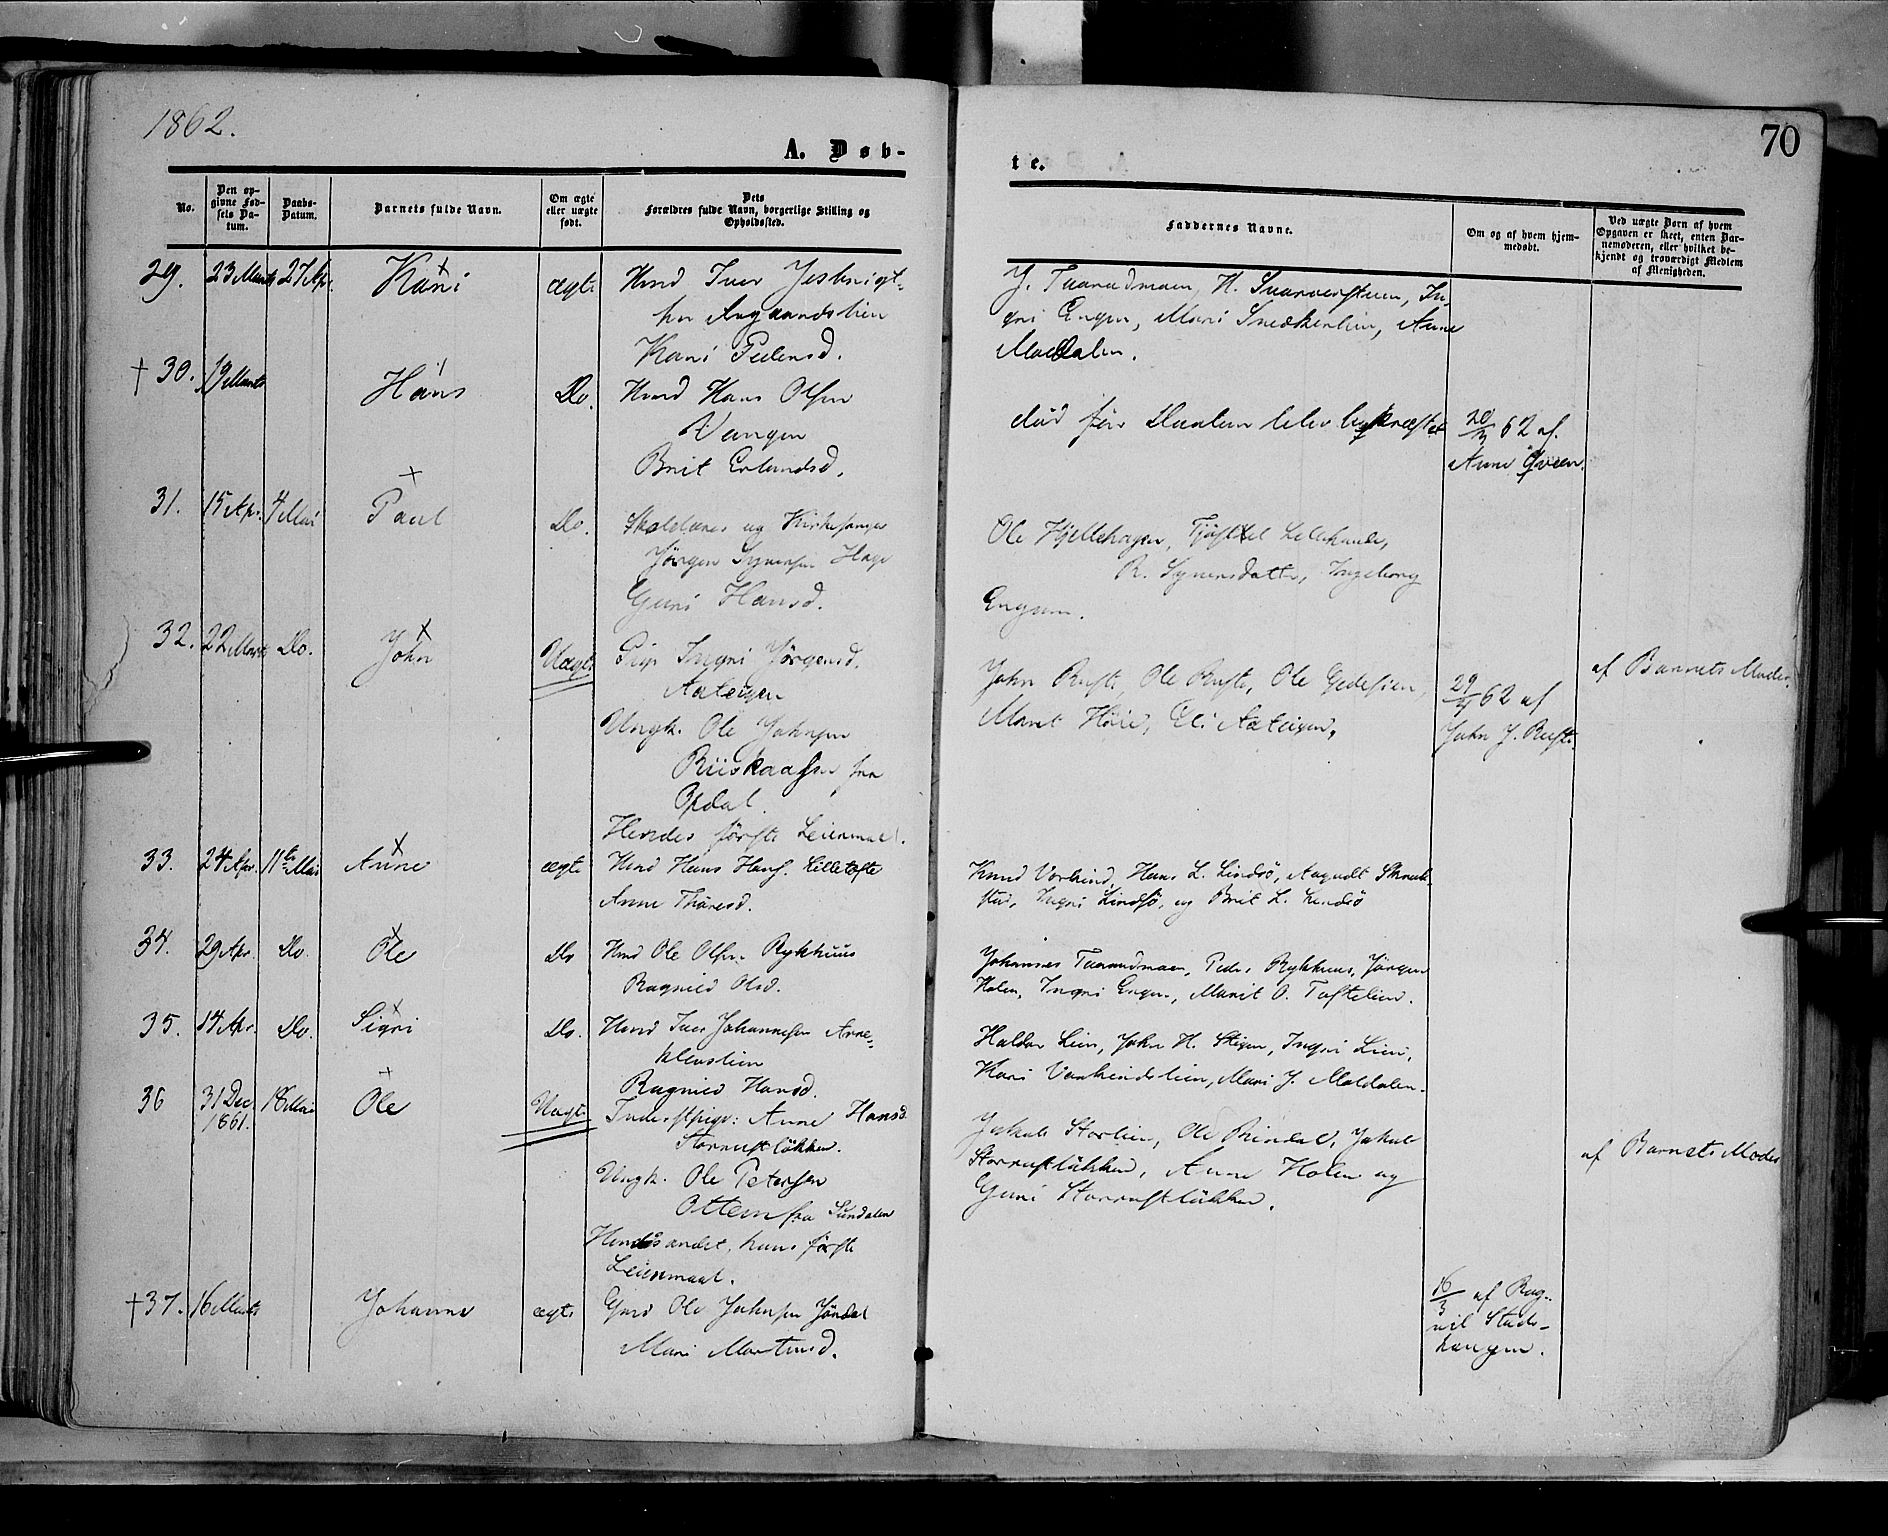 1862.
70
A. Døb-
te.
No.
Den op-
givne Fød-
sels Da-
tum.
Daabs-
Datum.
Barnets fulde Navn.
Om ægte
eller uægte
født.
Dets
Forældres fulde Navn, borgerlige Stilling og
Opholdssted.
Faddernes Navne.
Om og af hvem hjem-
medøbt.
Ved uægte Børn af hvem
Opgaven er skeet, enten Bar-
nemoderen, eller hvilket be-
kjendt og troværdigt Medlem
af Menigheden.
29. 23 Marts 27 Apr. Kari ægte Hmd Iver
Kari Pedersd.
Ingri Engen, Mari Snedkerlien, Anne
Moldalen.
† 30. 19 Marts Hans Do. Hmd Hans Olsen
Vangen
Brit Erlandsd.
død før Daaben blev bekræftet
20/3 62 af
Anne Hveen.
31. 15 Apr. 4 Mai Paul Do. Skolelærer og Kirkesanger
Jørgen Syversen Hage
Guri Hansd.
Ole Hjellehagen,
R. Syversdatter, Ingeborg
Engum.
32. 22 Marts Do. John Uægte Pige Ingri Jørgensd.
Aateigen
Ungk. Ole Johnsen
Riiskaasen fra
Opdal.
Hendes første Leiermaal.
John Ruste, Ole Ruste, Ole Gedesien,
Marit Høie, Eli Aateigen.
29/4 62 af
John J. Ruste.
af Barnets Moder.
33. 24 Apr. 11te Mai Anne ægte Hmd Hans Hans. Lilletofte
Anne Thoresd.
Knud Vorkind, Hans L. Lindsø,
Ingri Lindsø, og Brit L. Lindsø
34. 29 Apr. Do. Ole Do Hmd Ole Olsen Rykhuus
Ragnild Olsd.
Johannes Taaraudmoen, Peder Rykhuus, Jørgen
Holen, Ingri Engen, Marit O. Toftelien.
35. 14 Apr. Do. Sigri Do. Hmd Iver Johannesen Arne-
klevslien
Ragnild Hansd.
Haldor Lien, John H. Stigen, Ingri Lien,
Kari Vorkindslien, Mari J. Moldalen.
36 31 Dec. 1861. 18 Mai Ole Uægte Inderstpige: Anne Hansd
Storrustløkken.
Ungk. Ole Petersen
Ottem fra Sundalen
Hendes andet, hans første
Leiermaal.
Jakob Storlien, Ole Rindal, Jakob
Storrustløkken, Anne Holen og
Guri Storrustløkken.
af Barnets Moder
† 37. 16 Marts Johanne ægte Gmd Ole Johnsen Jøndal
Mari Mortensd.
16/3 af Rag-
nil Stads-
haugen.